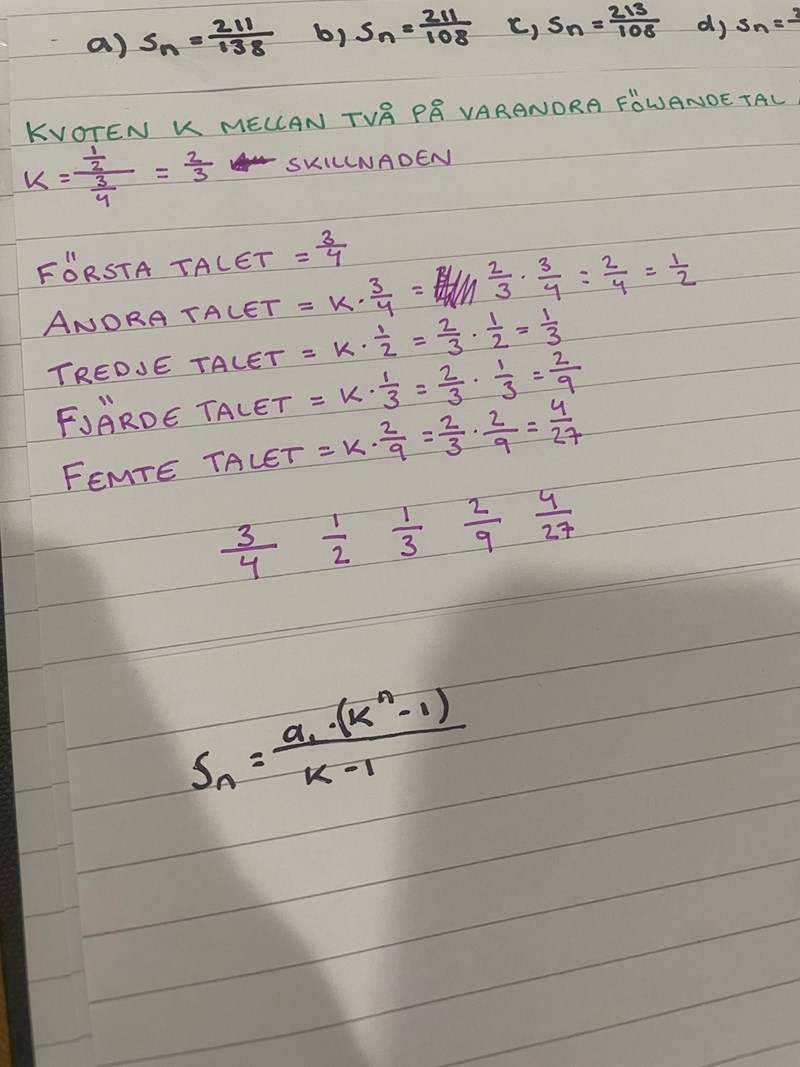 a) Sn = 211/138 b) Sn = 211/108 c) Sn = 213/108 d) Sn =
KVOTEN K MELLAN TVÅ PÅ VARANDRA FÖLJANDE TAL
K = (1/2)/(3/4) = 2/3 ← SKILLNADEN
FÖRSTA TALET = 3/4
ANDRA TALET = K · 3/4 = 2/3 · 3/4 = 2/4 = 1/2
TREDJE TALET = K · 1/2 = 2/3 · 1/2 = 1/3
FJÄRDE TALET = K · 1/3 = 2/3 · 1/3 = 2/9
FEMTE TALET = K · 2/9 = 2/3 · 2/9 = 4/27
3/4 1/2 1/3 2/9 4/27
Sn = a₁ · (Kⁿ - 1) / (K - 1)